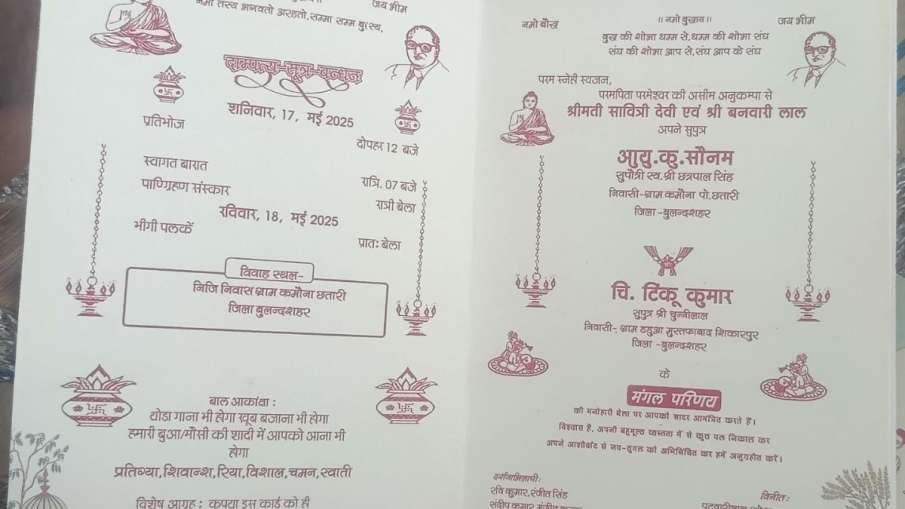 जय भीम
नमो तस्य भगवतो अरहतो,सम्मा सम्म बुध्स्व,
दाम्पत्य-सुत्र-बन्धन
शनिवार, 17, मई 2025
प्रतिभोज
दोपहर 12 बजे
स्वागत बारात
रात्रि. 07 बजे
पाणिग्रहण संस्कार
रात्री बेला
रविवार, 18, मई 2025
भीगी पलकें
प्रात: बेला
विवाह स्थल-
निजि निवास ग्राम कमौना छतारी
जिला बुलन्दशहर
बाल आकांक्षा :
थोडा गाना भी होगा खूब बजाना भी होगा
हमारी बुआ/मौसी की शादी में आपको आना भी
होगा
प्रतिग्या,शिवान्श,रिया,विशाल,चमन,स्वाती
विशेष आग्रह : कृपया इस कार्ड को ही
नमो बौद्ध
।। नमो बुद्धाय ।।
जय भीम
बुद्ध की शोभा धम्म से,धम्म की शोभा संघ
संघ की शोभा आप से,संघ आप के संघ
परम स्नेही स्वजन,
परमपिता परमेश्वर की असीम अनुकम्पा से
श्रीमती सावित्री देवी एवं श्री बनवारी लाल
अपने सुपुत्र
आयु.कु.सौनम
सुपौत्री स्व.श्री छत्रपाल सिंह
निवासी-ग्राम कमौना पो.छतारी
जिला -बुलन्दशहर
चि. टिंकू कुमार
सुपुत्र श्री चुन्नीलाल
निवासी- ग्राम हडुआ मुस्तफाबाद शिकारपुर
जिला -बुलन्दशहर
के
मंगल परिणय
की मनोहारी बेला पर आपको सादर आमंत्रित करते हैं।
विश्वास है, अपनी बहुमूल्य व्यस्तता में से कुछ पल निकाल कर
अपने आशीर्वाद से नव-युगल को अभिसिंचित कर हमें अनुग्रहीत करें।
दर्शनाभिलाषी:
विनीत:
रवि कुमार,रंजीत सिंह
संदीप कुमार